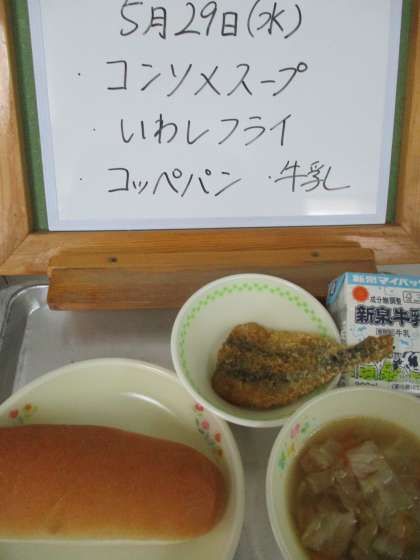 5月29日(水)
・コンソメスープ
・いわしフライ
・コッペパン ・牛乳
新泉マイパック
成分無調整
新泉牛乳
牛乳